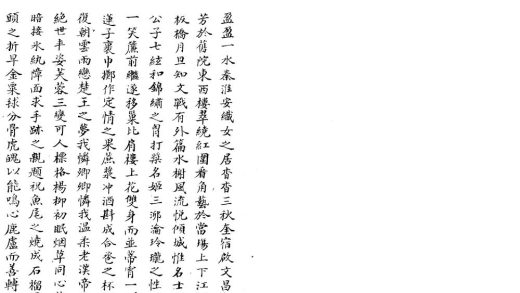 盈盈一水秦淮安織女之居杳杳三秋奎宿啟文昌
芳於舊院東西樓翠繞紅圍看角藝於當場上下江
板橋月旦知文戰有外篇水榭風流悅傾城惟名士
公子七絃和錦繡之胷打槳名姬三泖瀹玲瓏之性
一笑簾前繼遂移巢比肩樓上花雙身而並蒂宵一
蓮子裹巾擲作定情之果蔗漿沖酒斟成合卺之杯
復朝雲雨戀楚王之夢我憐卿卿憐我溫柔老漢帝
絕世丰姿芙蓉三變可人標格楊柳初眠烟草同心
暗接氷紈障面求手跡之親題祝魚尾之燒成石榴
頭之折早金粟毬分骨虎魄以能鳴心鹿盧而善轉